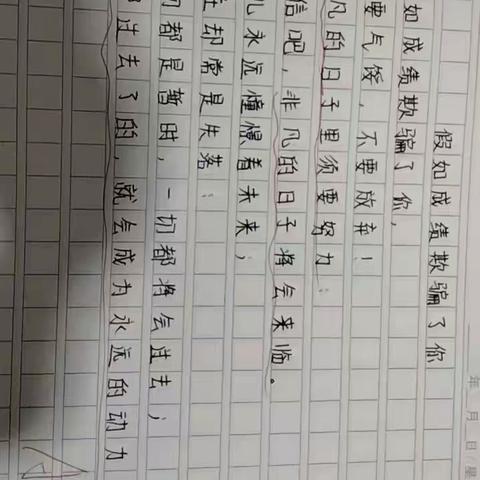 假如成绩欺骗了你
如成绩欺骗了你,
要气馁,不要放弃!
凡的日子里须要努力;
信吧,非凡的日子将会来临。
永远憧憬着未来;
却常是失落;
都是暂时,一切都将会过去;
过去了的,就会成为永远的动力
年 月 日/星